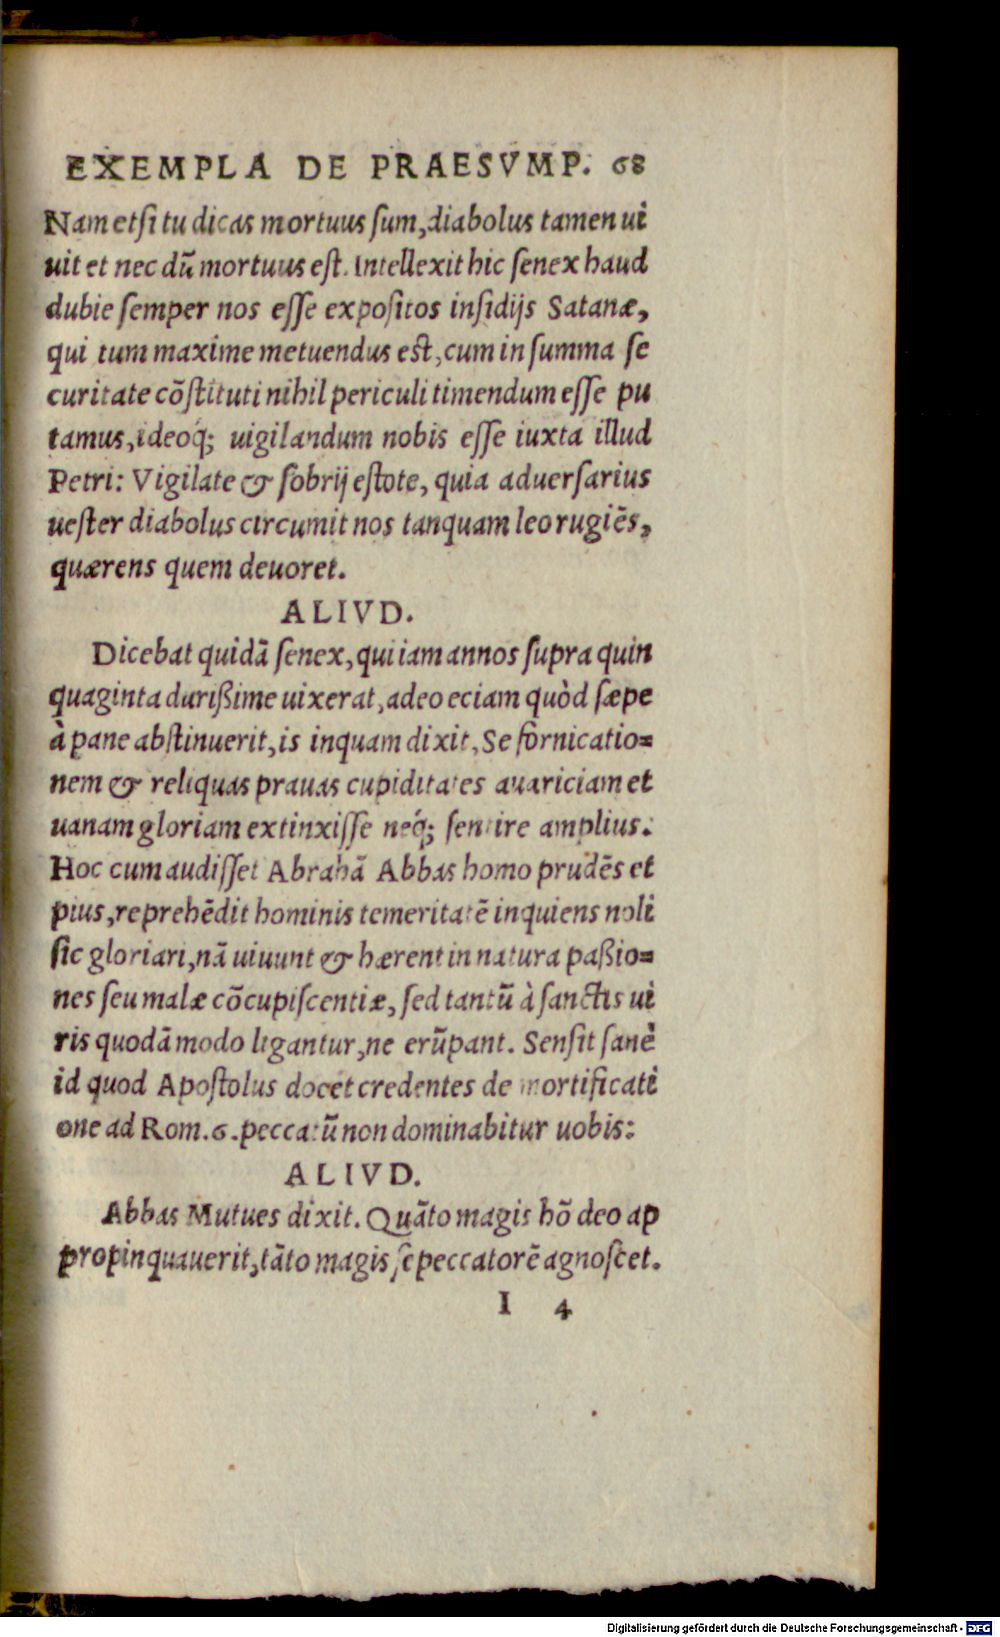 EXEMPLA DE PRAESVMP. 68
Nam etsi tu dicas mortuus sum, diabolus tamen ui
uit et nec dũ mortuus est. Intellexit hic senex haud
dubie semper nos esse expositos insidijs Satanæ,
qui tum maxime metuendus est, cum in summa se
curitate cõstituti nihil periculi timendum esse pu
tamus, ideoq́; uigilandum nobis esse iuxta illud
Petri: Vigilate & sobrij estote, quia aduersarius
uester diabolus circumit nos tanquam leo rugiẽs,
quærens quem deuoret.
ALIVD.
Dicebat quidã senex, qui iam annos supra quin
quaginta durißime uixerat, adeo eciam quòd sæpe
à pane abstinuerit, is inquam dixit, Se fornicatio=
nem & reliquas prauas cupiditates auariciam et
uanam gloriam extinxisse neq́; sentire amplius.
Hoc cum audisset Abrahã Abbas homo prudẽs et
pius, reprehẽdit hominis temeritatẽ inquiens noli
sic gloriari, nã uiuunt & hærent in natura paßio=
nes seu malæ cõcupiscentiæ, sed tantũ à sanctis ui
ris quodã modo ligantur, ne erũpant. Sensit sanè
id quod Apostolus docet credentes de mortificati
one ad Rom. 6. peccatũ non dominabitur uobis:
ALIVD.
Abbas Mutues dixit. Quãto magis hõ deo ap
propinquauerit, tãto magis se peccatorẽ agnoscet.
I 4
Digitalisierung gefördert durch die Deutsche Forschungsgemeinschaft - DFG